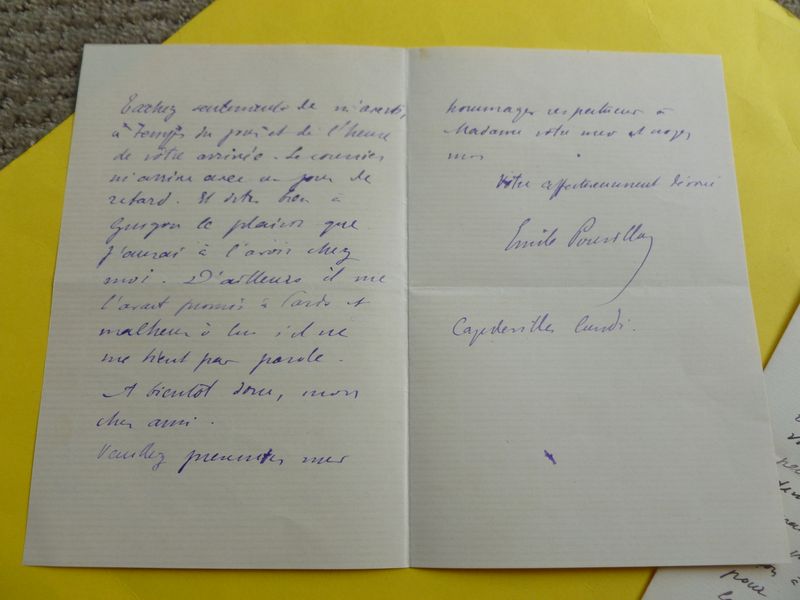 Tachez seulement de m'avertir
à temps du jour et de l'heure
de votre arrivée. Le courrier
m'arrive avec un jour de
retard. Et dites bien à
Guigou le plaisir que
j'aurai à l'avoir chez
moi. D'ailleurs il me
l'avait promis à Paris et
malheur à lui s'il ne
me tient pas parole.
A bientôt donc, mon
cher ami.
Veuillez présenter mes
hommages respectueux à
Madame votre mère et
moi
Votre affectueusement dévoué
Emile Pouvillon
Capdeville lundi.
pour